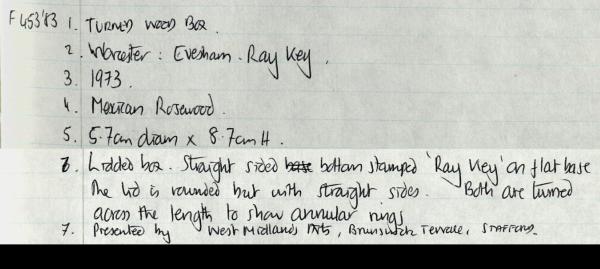 F453'83 1. TURNED WOOD BOX.
2. Worcester : Evesham. Ray Key.
3. 1973.
4. Mexican Rosewood.
5. 5.7cm diam x 8.7cm H.
6. Lidded box. Straight sided base bottom stamped 'Ray Key' on flat base
The lid is rounded but with straight sides. Both are turned
across the length to show annular rings
7. Presented by West Midlands Arts, Brunswick Terrace, STAFFORD.